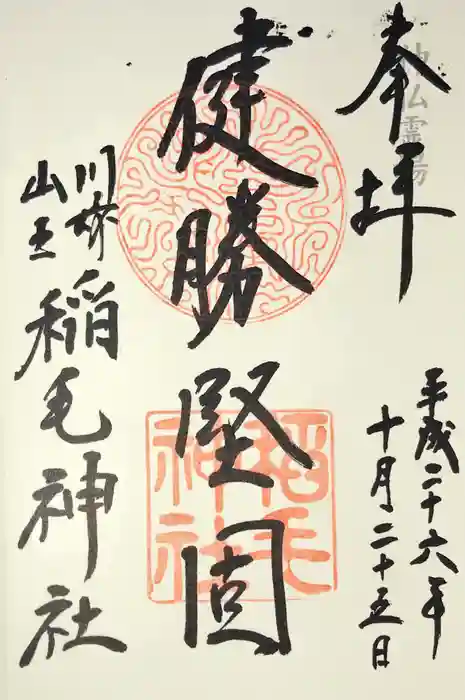 奉拝
神仏霊場
平成二十六年
十月二十五日
健勝堅固
川崎
山王
稲毛神社
稲毛
神社